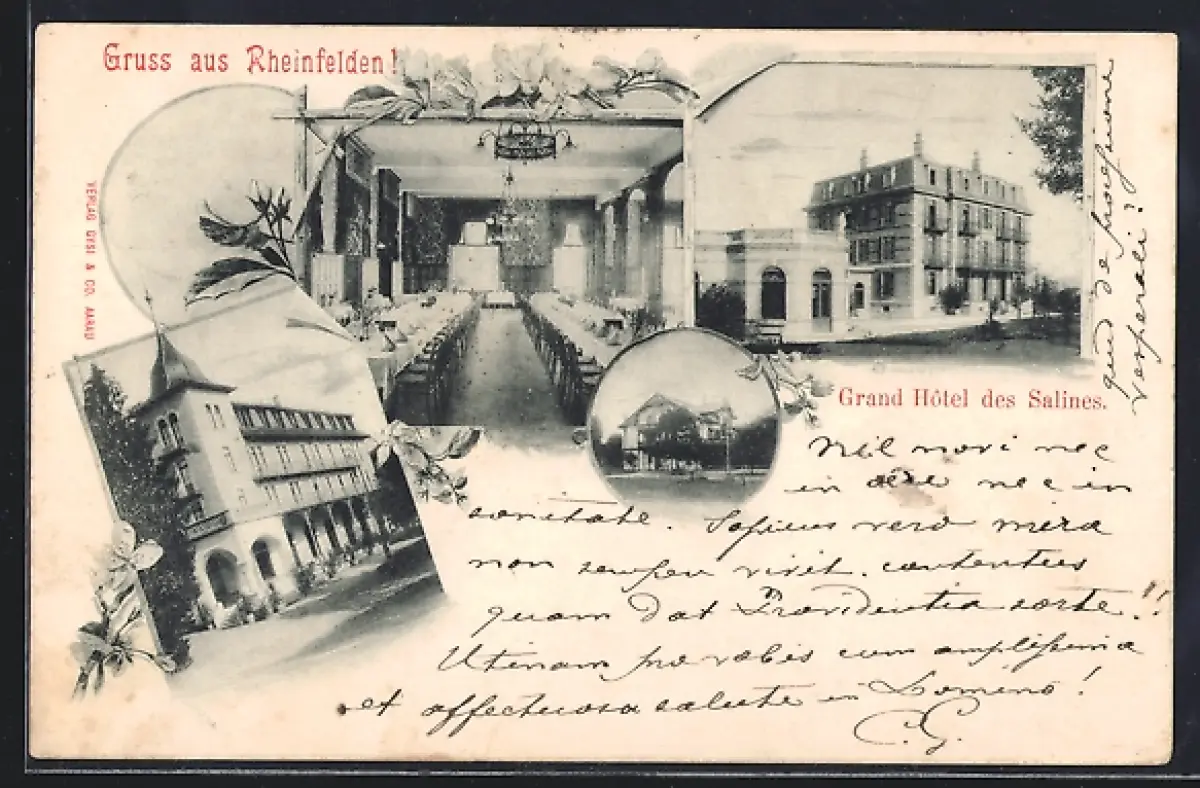 Gruss aus Rheinfelden!
VERLAG GYSI & CO. AARAU
Grand Hôtel des Salines.
Nil novi nec
in aëre nec in
sanitate. Sapiens vero
non semper vivit contentus
quam dat Providentia sorte!!
Utinam pro vobis cum amplissima
et affectuosa salute in Domino!
C. G.
quid de